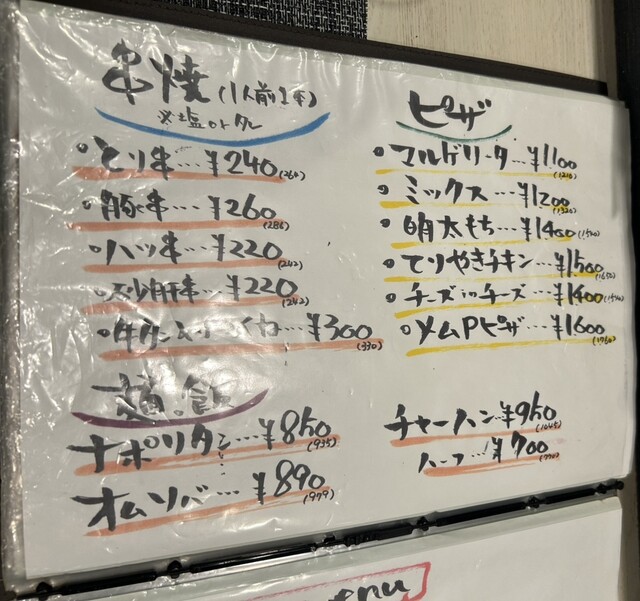 串焼(1人前1本)
※塩orタレ
・とり串…¥240(260)
・豚串…¥260(286)
・ハツ串…¥220(242)
・砂肝串…¥220(242)
・牛タン…¥300(330)
麺・飯
ナポリタン…¥850(935)
オムソバ…¥890(979)
ピザ
・マルゲリータ…¥1100(1210)
・ミックス…¥1200(1320)
・明太もち…¥1400(1540)
・てりやきチキン…¥1500(1650)
・チーズinチーズ…¥1400(1540)
・メムPピザ…¥1600(1760)
チャーハン…¥950(1045)
ハーフ…¥700(770)
enu